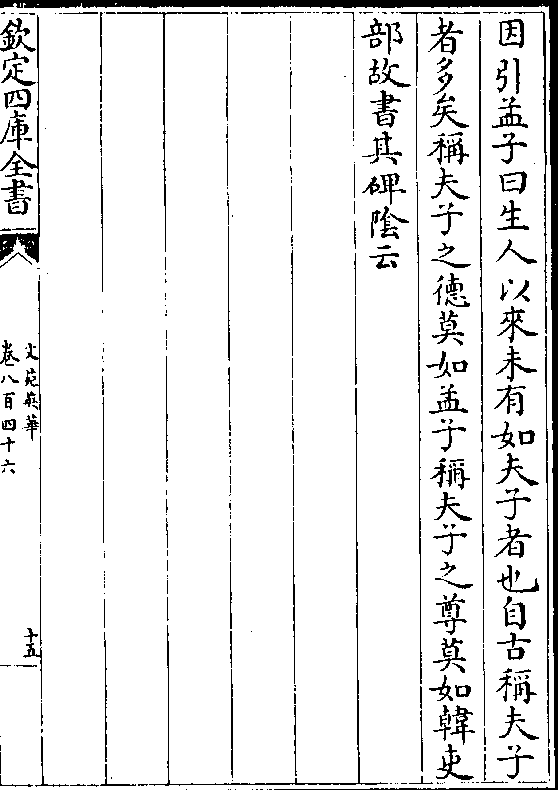 因引孟子曰生人以來未有如夫子者也自古稱夫子
者多矣稱夫子之德莫如孟子稱夫子之尊莫如韓吏
部故書其碑隂云
欽定四庫全書
文苑英華
卷八百四十六
十五